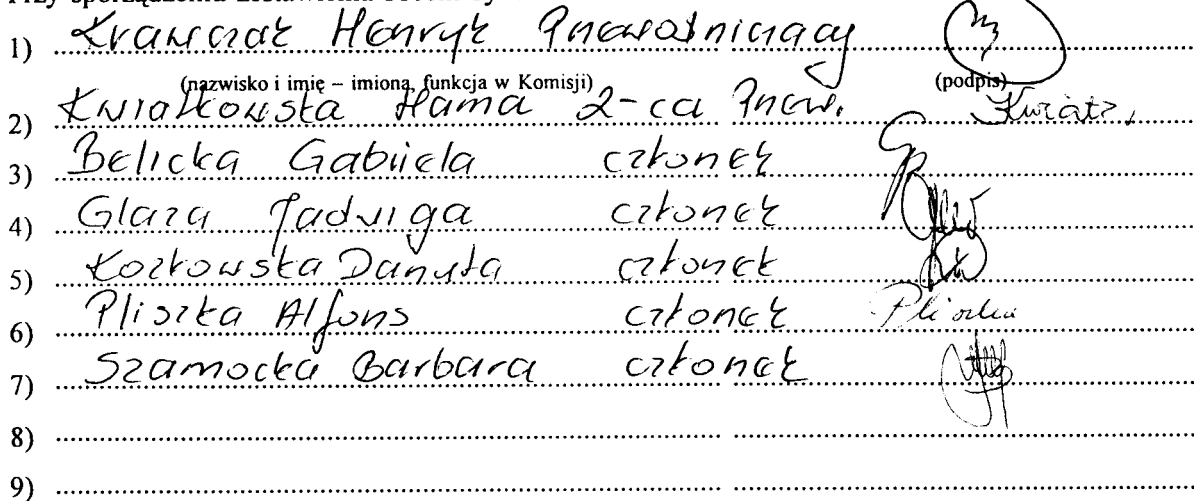 1) Krawczak Henryk Przewodniczący
(nazwisko i imię – imiona, funkcja w Komisji) (podpis)
2) Kwiatkowska Hanna Z-ca Przew. Kwiatk.
3) Belicka Gabriela członek
4) Glaza Jadwiga członek
5) Kozłowska Danuta członek
6) Pliszka Alfons członek Pliszka
7) Szamocka Barbara członek
8)
9)